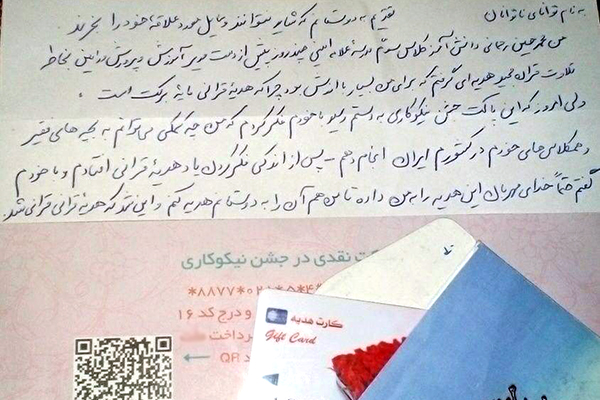 به نام توانای ناتوانان
تقدیم به دوستانم که شاید نتوانند وسایل مورد علاقه خود را بخرند
من محمد حسین رجائی دانش آموز کلاس سوم مدرسه علامه امینی چند روز پیش از دست مدیر آموزش و پرورش نائین بخاطر
تلاوت قرآن مجید هدیه ای گرفتم که برای من بسیار با ارزش بود چرا که هدیه قرآنی مایه برکت است .
ولی امروز که این پاکت جشن نیکوکاری به دستم رسید با خودم فکر کردم که من چه کمکی می توانم به بچه های فقیر
و همکلاس های خودم در کشورم ایران انجام دهم - پس از اندکی فکر کردن یاد هدیه قرآنی افتادم و با خودم
گفتم حتماً خدای مهربان این هدیه را به من داده تا من هم آن را به دوستانم هدیه کنم و این شد که هدیه قرآنی قرآنی شد
ت نقدی در جشن نیکوکاری
*۸۸۷۷*۰
و درج کد ۱۶
پرداخت
QR
کارت هدیه
Gift Card